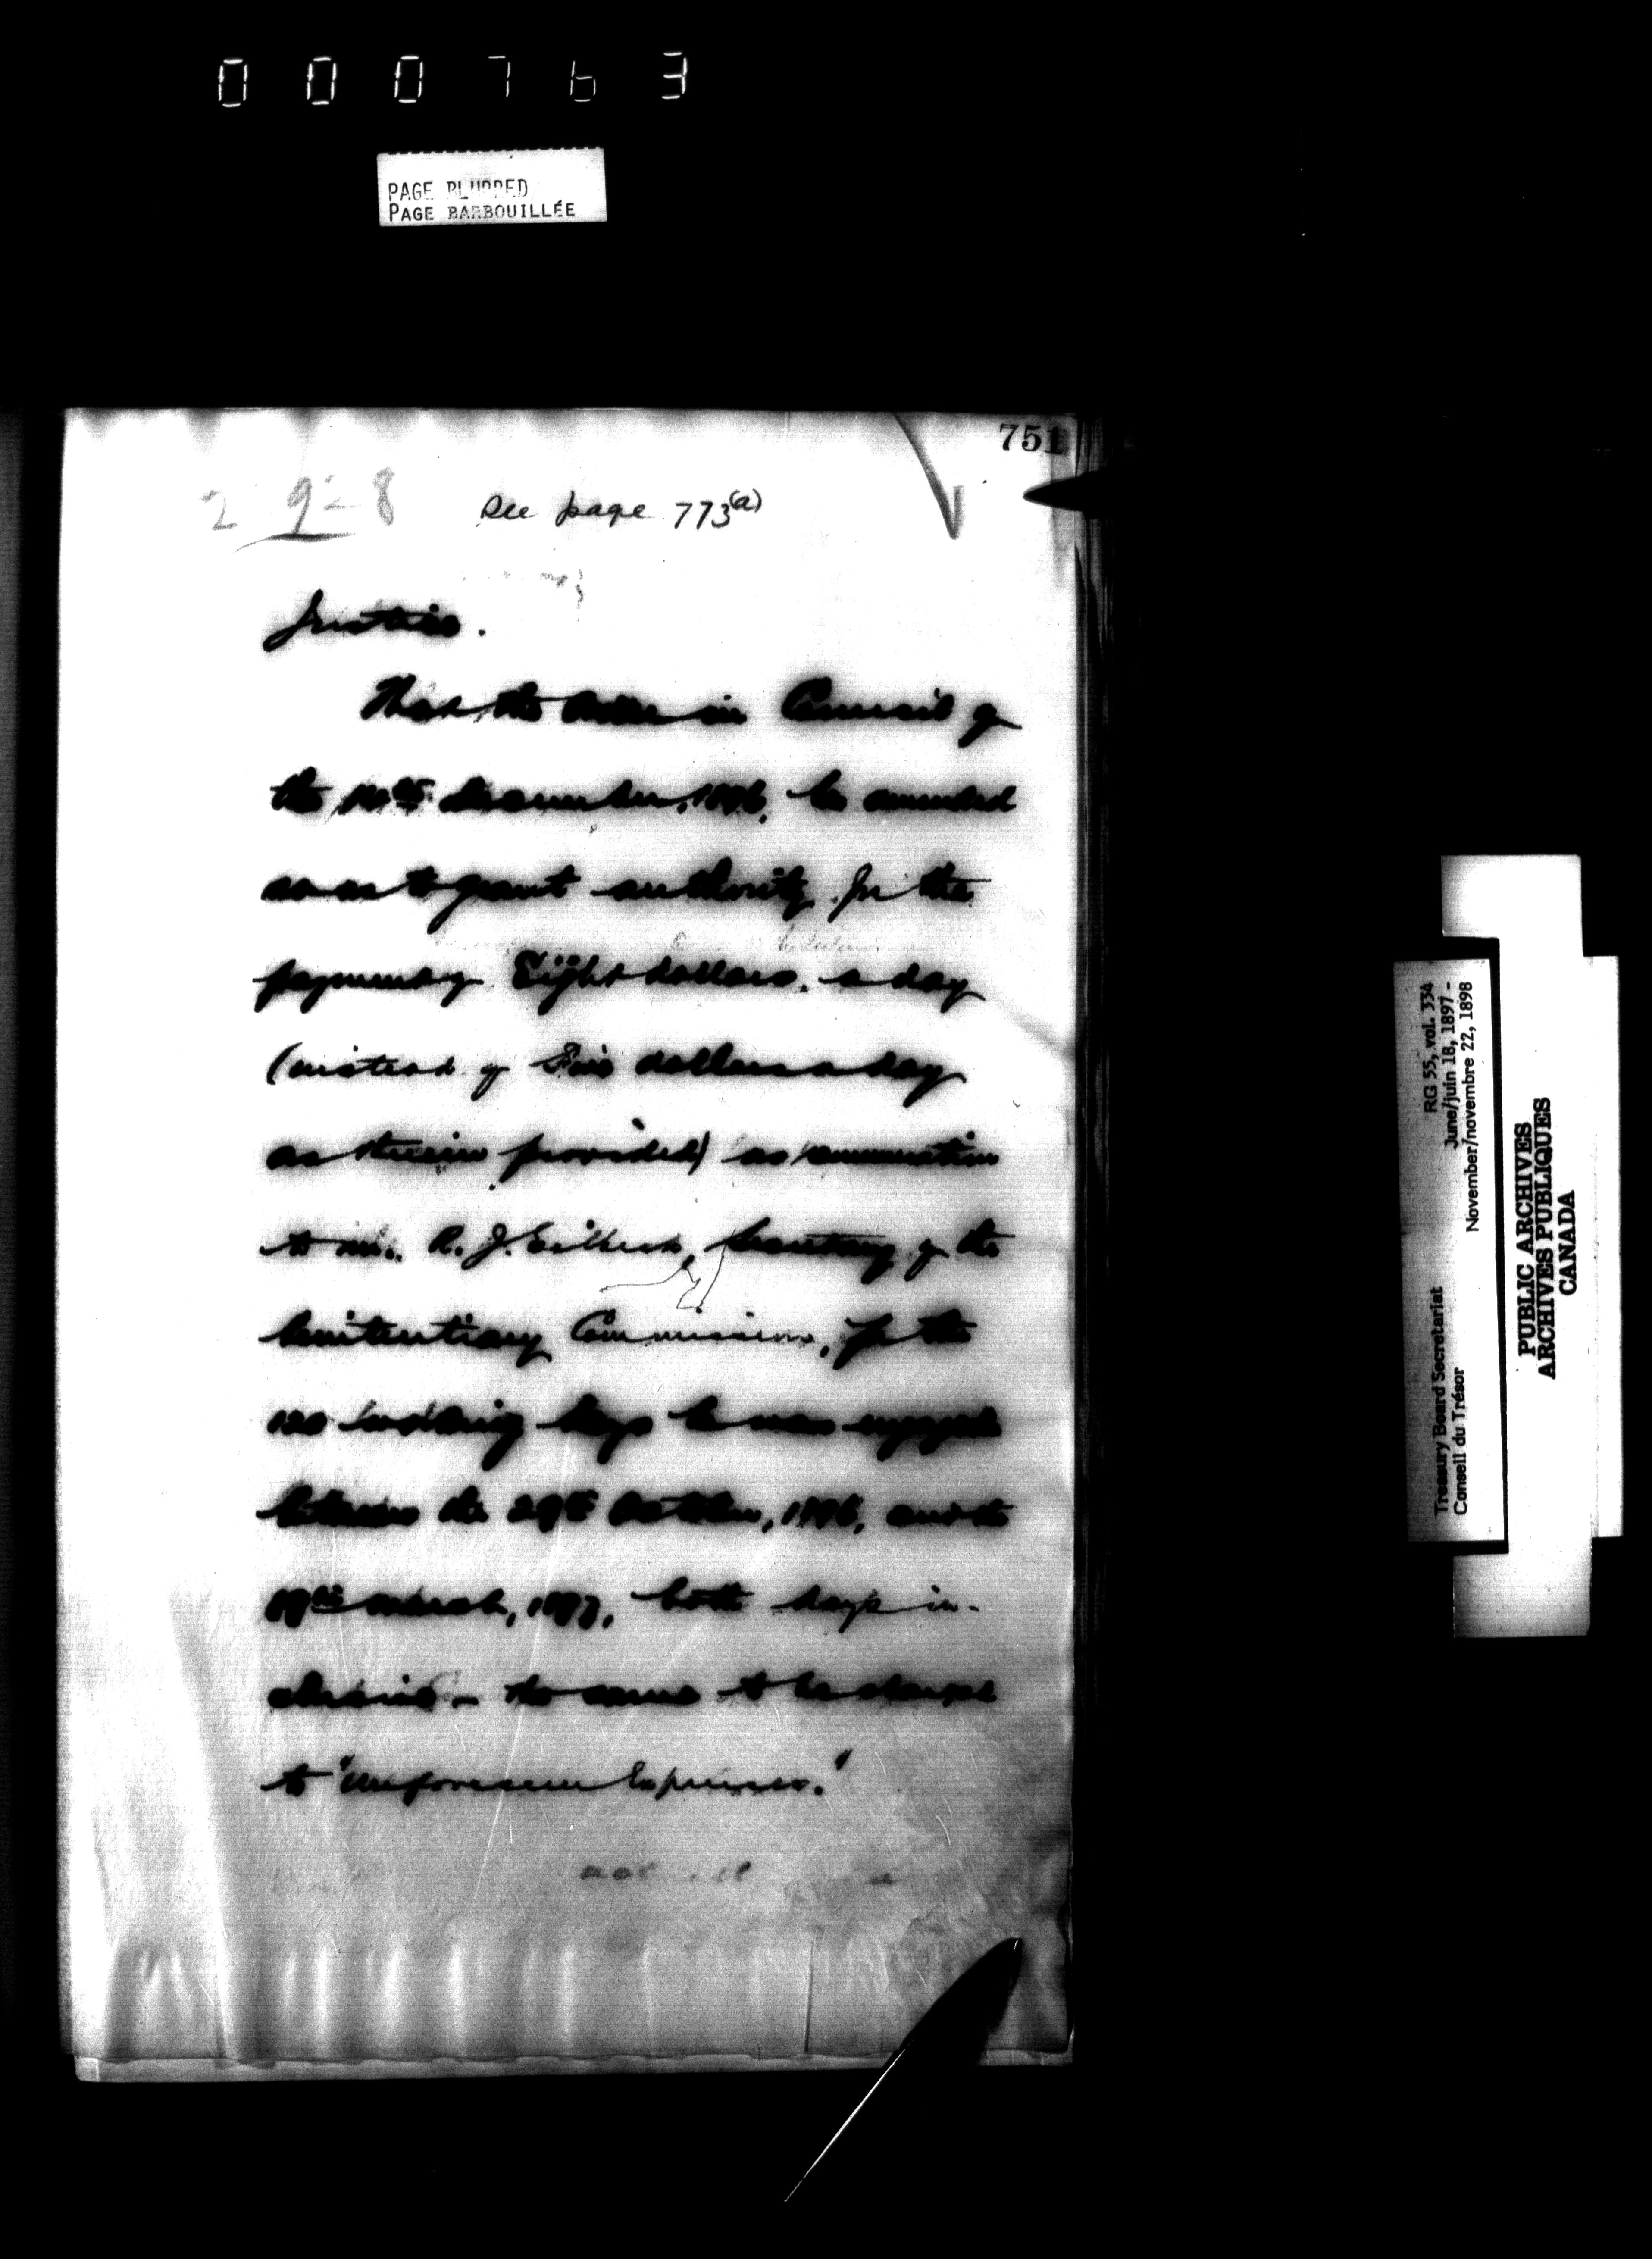 000763
PAGE BLURRED
PAGE BARBOUILLÉE
751
2928
See page 773(a)
Justice.
That the Order in Council of
the December, 1896, be amended
so as to grant authority for the
payment of Eight dollars a day
(instead of dollars a day
as therein provided) as remuneration
to Mr. R. J. Secretary of the
Penitentiary Commission, for the
120 working days he was engaged
between the 29th October, 1896, and the
March, 1897, both days in-
clusive - the same to be charged
to "Unforeseen Expenses."
Treasury Board Secretariat
Conseil du Trésor
RG 55, vol. 334
June/juin 18, 1897 -
November/novembre 22, 1898
PUBLIC ARCHIVES
ARCHIVES PUBLIQUES
CANADA